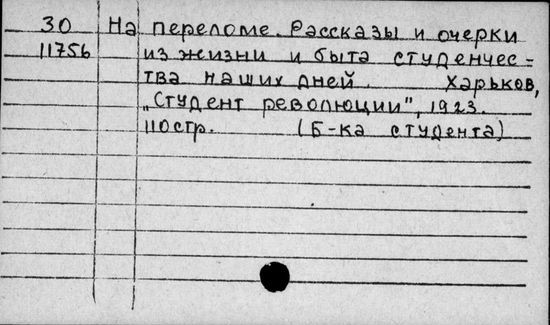 30 На переломе. Рассказы и очерки
11756 из жизни и быта студенчес-
тва наших дней. Харьков,
„Студент революции", 1923.
110стр. (Б-ка студента)